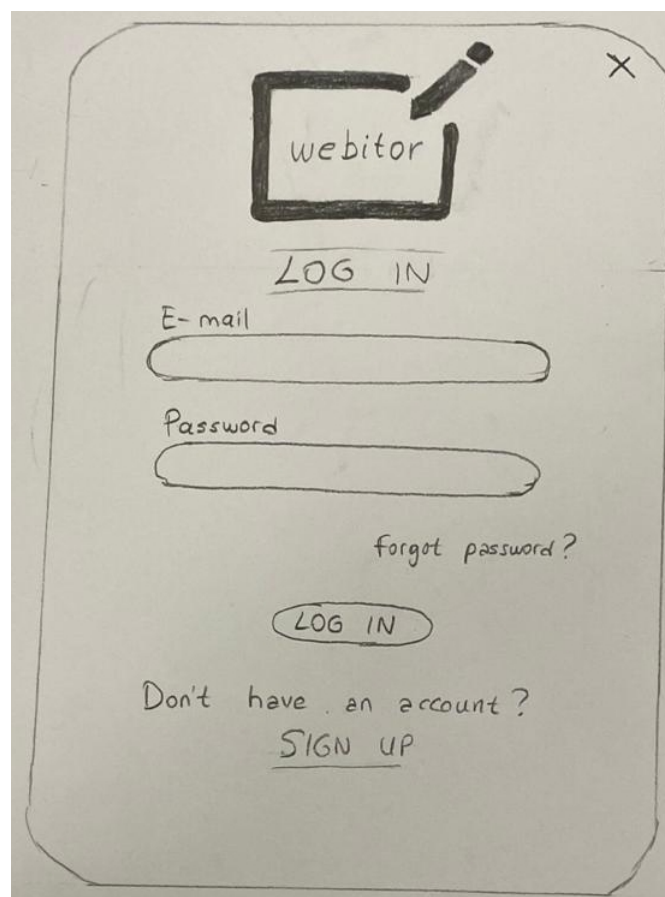 webitor
LOG IN
E-mail
Password
forgot password?
LOG IN
Don't have an account?
SIGN UP